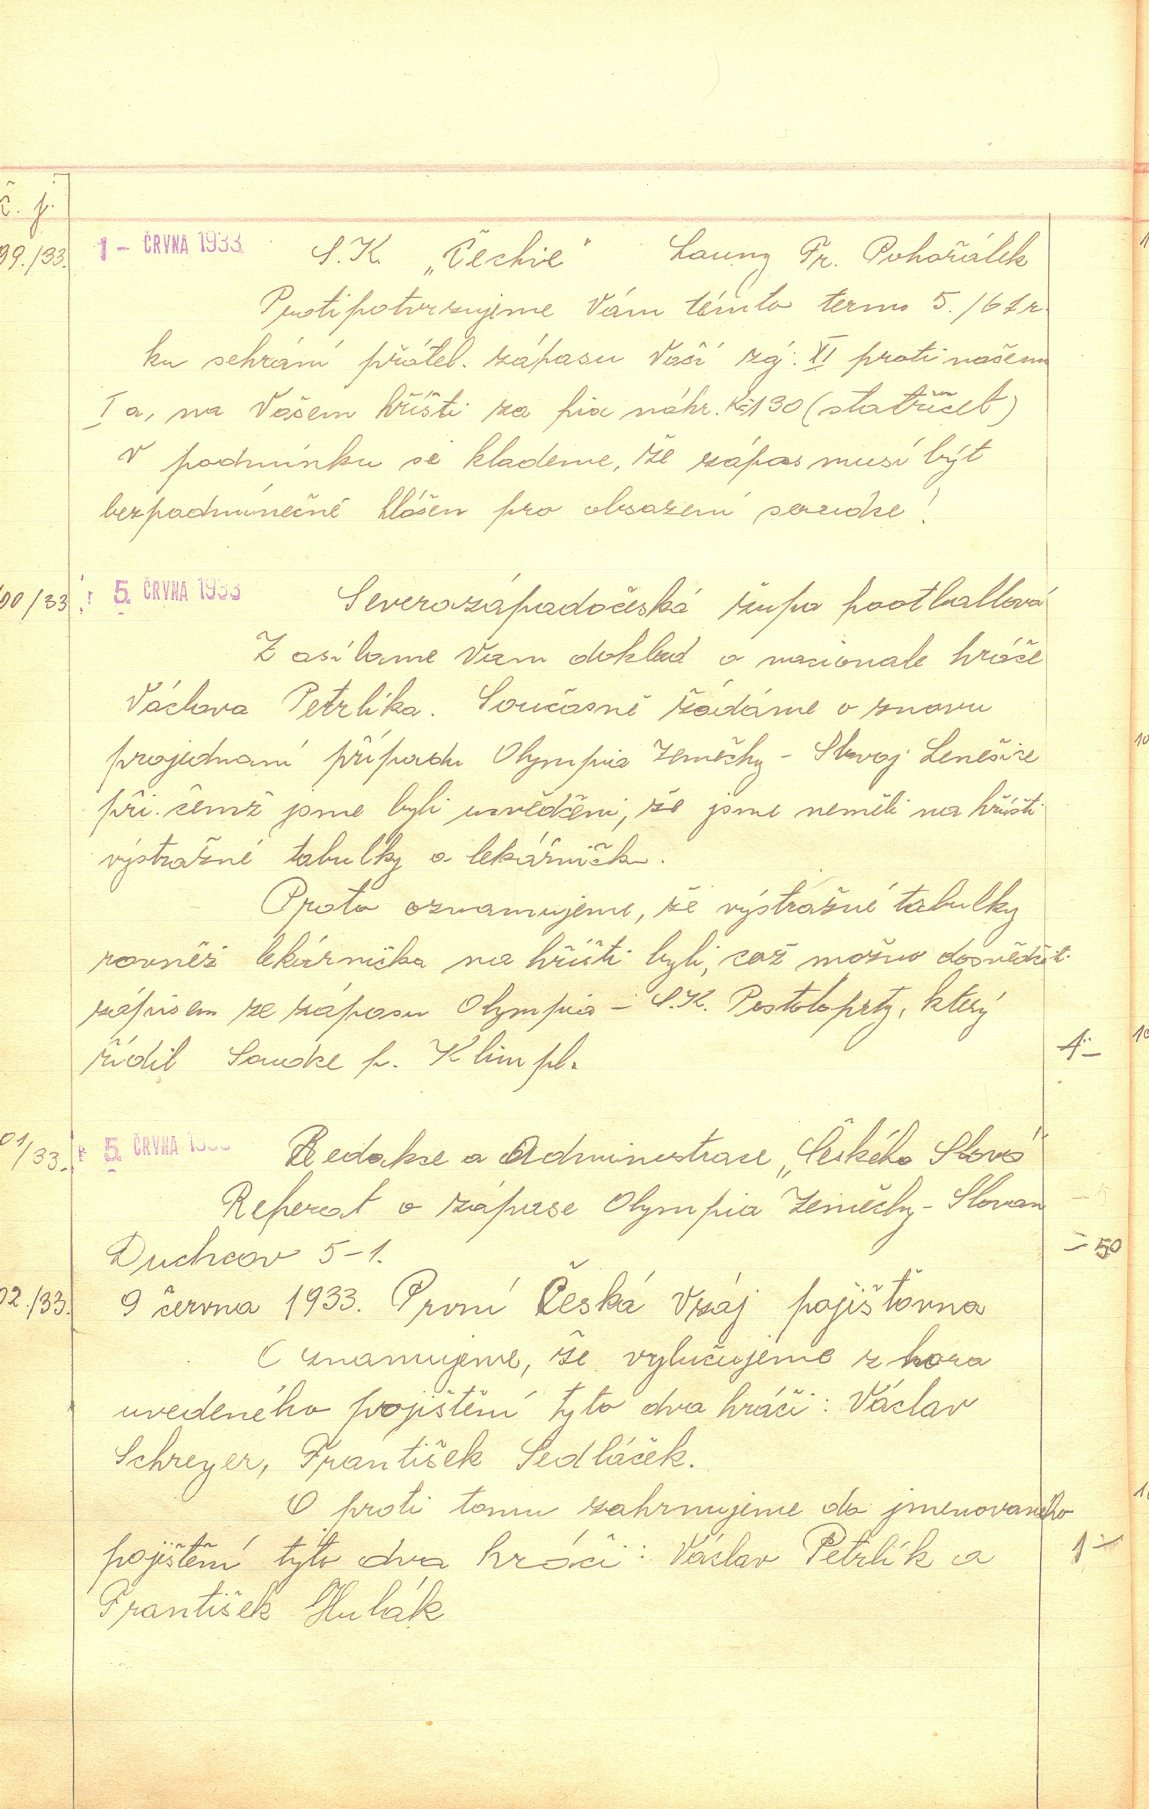 č. j.
99./33. 1 - ČRVNA 1933 S. K. „Čechie" Louny Fr. Pohořálek
Protipotvrzujeme Vám tímto termo 5./6 t.r.
ku sehrání přátel. zápasu Vaší zá: XI proti našemu
I a, na Vašem hřišti za fix náhr. Kč 130 (statřicet)
V podmínku si klademe, že zápas musí být
bezpodmínečně hlášen pro obsazení soudce!
00/33 5. ČRVNA 1933 Severozápadočeská župa footballová
Zasíláme Vám doklad o nacionale hráče
Václava Petrlíka. Současně žádáme o znovu
projednaní případu Olympia Zeměchy - Slavoj Lenešice
při čemž jsme byli usvědčeni, že jsme neměli na hřišti
výstražné tabulky a lekárničku.
Proto oznamujeme, že výstražné tabulky
rovněž lekárnička na hřišti byli, což možno dosvědčit
zápisem ze zápasu Olympia - S.K. Postoloprty, který
řídil Soudce p. Klimpl. 4-
01/33. 5. ČRVNA 1933 Redakce a Administrace „Českého Slova"
Referat o zápase Olympia Zeměchy - Slovan
Duchcov 5-1. -50
02./33. 9 června 1933. První Česká Vzáj pojišťovna
Oznamujeme, že vylučujeme z hora
uvedeného pojištění tyto dva hráči: Václav
Schreyer, František Sedláček.
O proti tomu zahrnujeme do jmenovaného
pojištění tyto dva hráči: Václav Petrlík a 1-
František Hulák